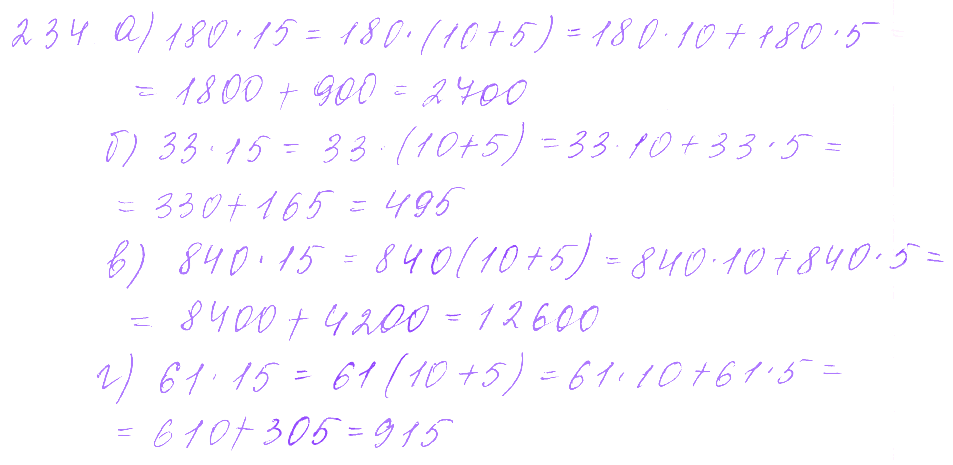 234 а) 180·15 = 180·(10+5) = 180·10+180·5 =
= 1800 + 900 = 2700
б) 33·15 = 33·(10+5) = 33·10+33·5 =
= 330+165 = 495
в) 840·15 = 840(10+5) = 840·10+840·5 =
= 8400+4200 = 12600
г) 61·15 = 61(10+5) = 61·10+61·5 =
= 610+305 = 915